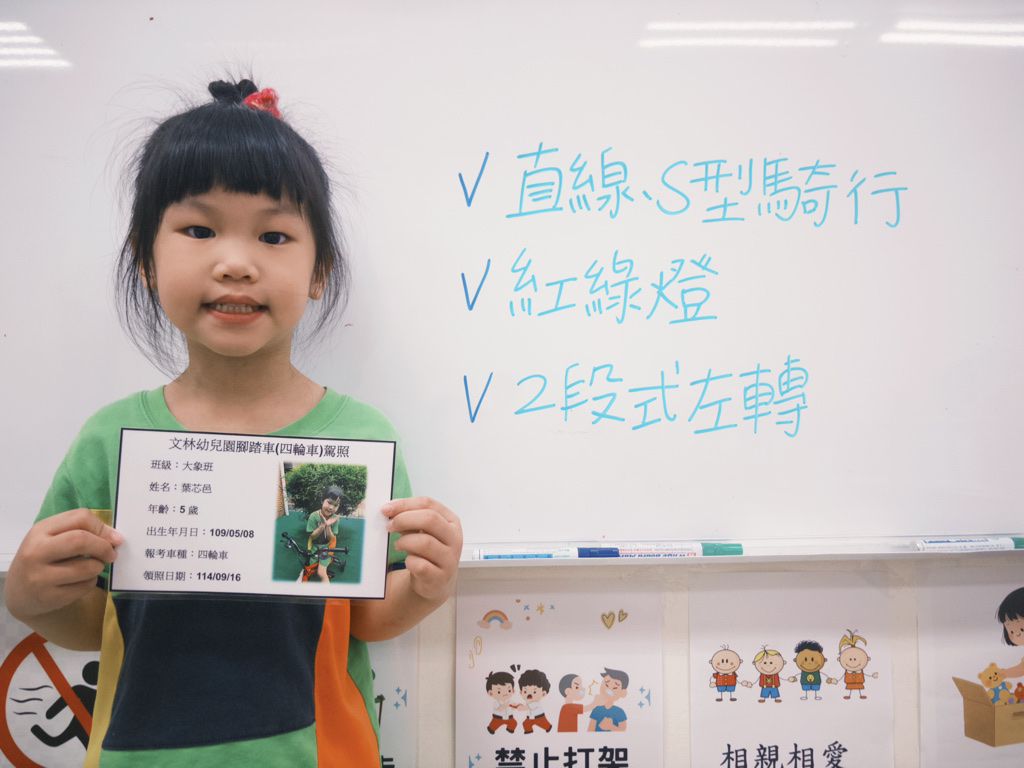 ✓ 直線、S型騎行
✓ 紅綠燈
✓ 2段式左轉
文林幼兒園腳踏車(四輪車)駕照
班級：大象班
姓名：葉芯邑
年齡：5 歲
出生年月日：109/05/08
報考車種：四輪車
領照日期：114/09/16
禁止打架
相親相愛